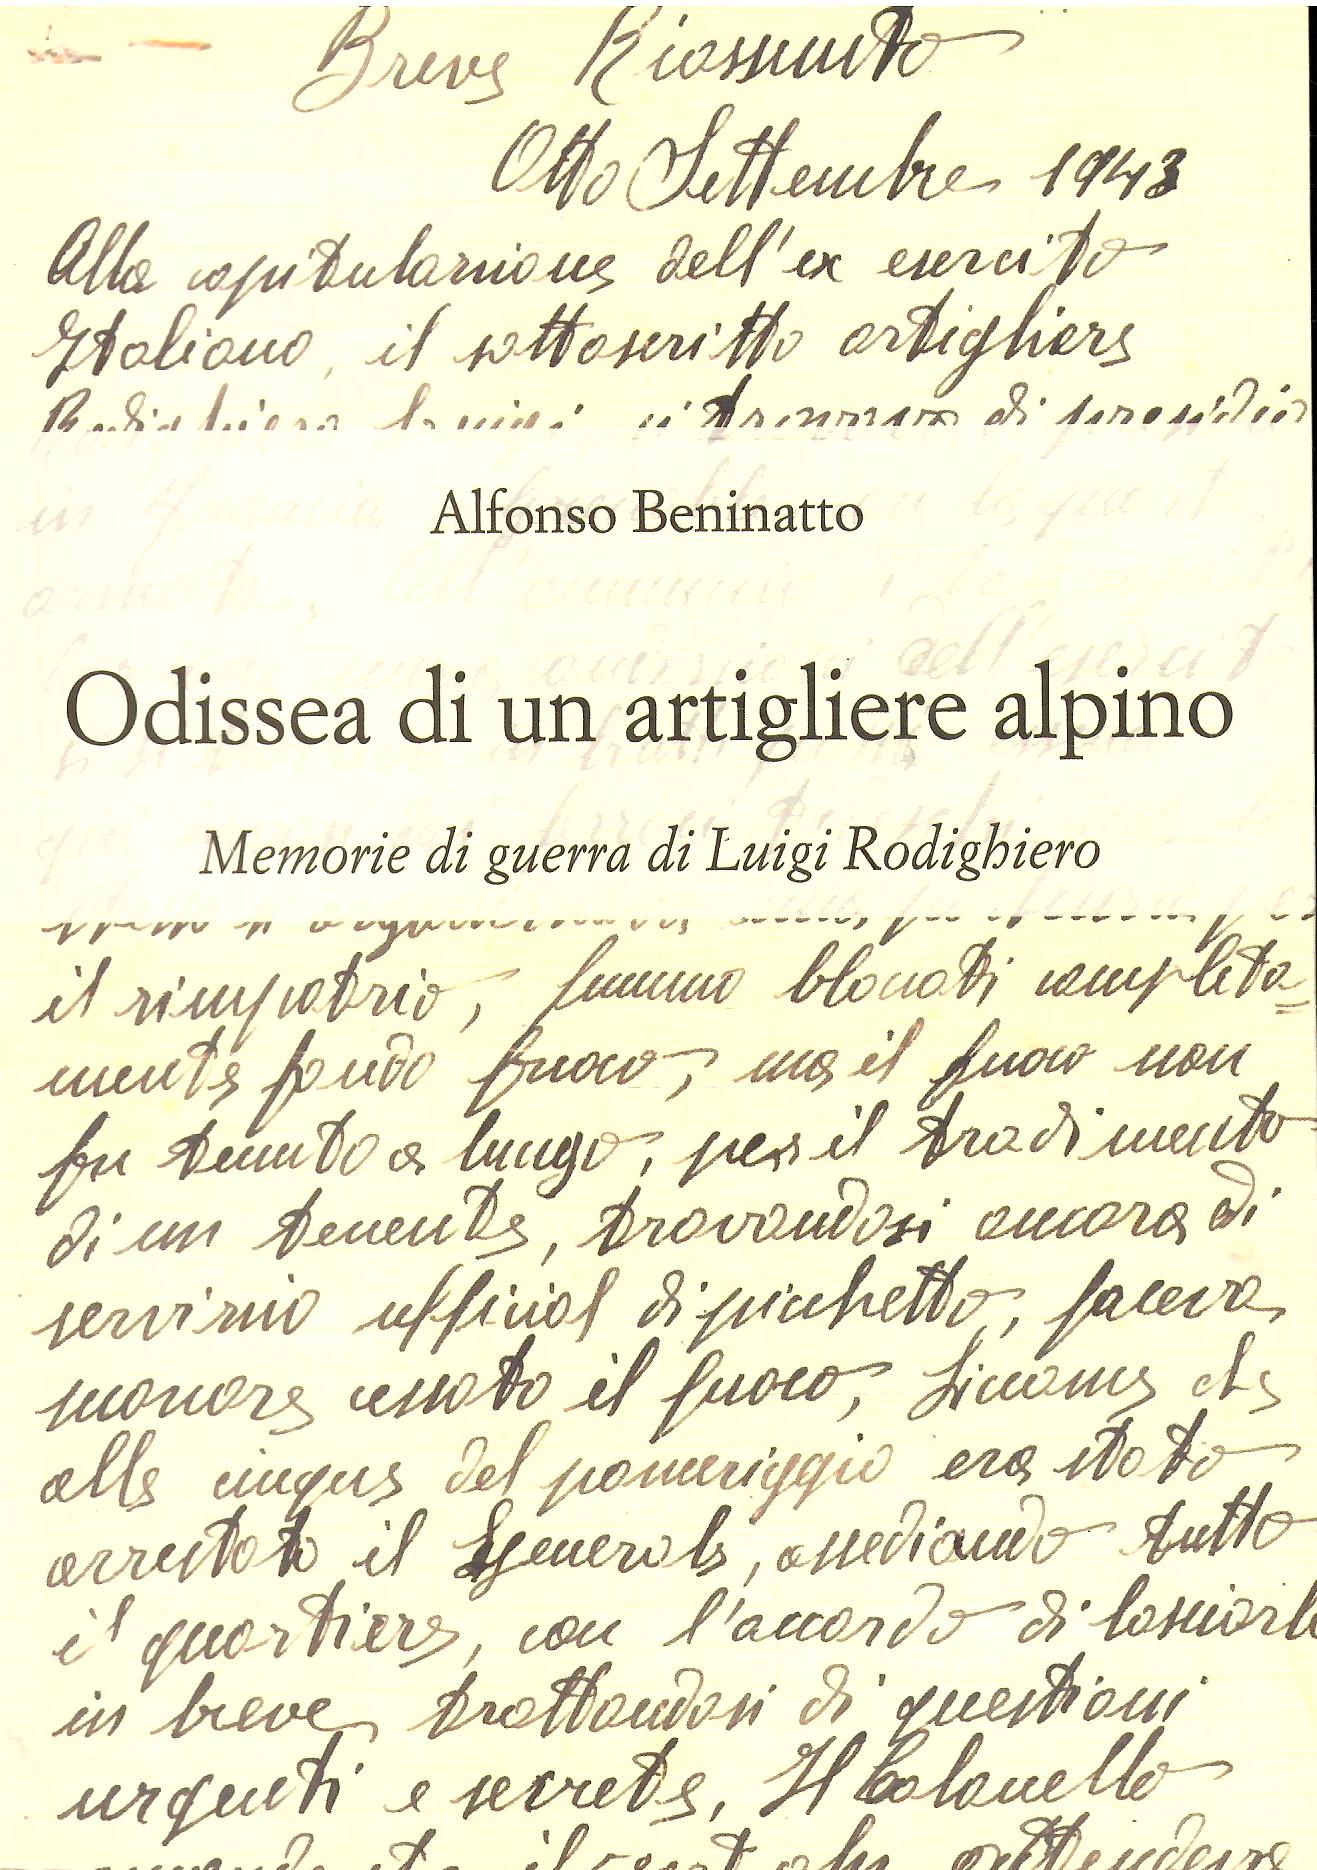 Breve Riassunto
Otto Settembre 1943
Alla capitolazione dell'ex esercito
Italiano, il sottoscritto artigliere
Rodighiero Luigi, si trovava di presidio
in Francia
armata, all'annuncio
dell'esercit
Alfonso Beninatto
Odissea di un artigliere alpino
Memorie di guerra di Luigi Rodighiero
il rimpatrio, fummo blocati completa=
mente fando fuoco, ma il fuoco non
fu tenuto a lungo, per il tradimento
di un tenente, trovandosi ancora di
servizio ufficial di picchetto, faceva
suonare cessato il fuoco, Siccome che
alle cinque del pomeriggio era stato
arrestato il Generale, assediando tutto
il quartiere, con l'accordo di lasciarlo
in breve trattandosi di questioni
urgenti e secrete, Il Colonello